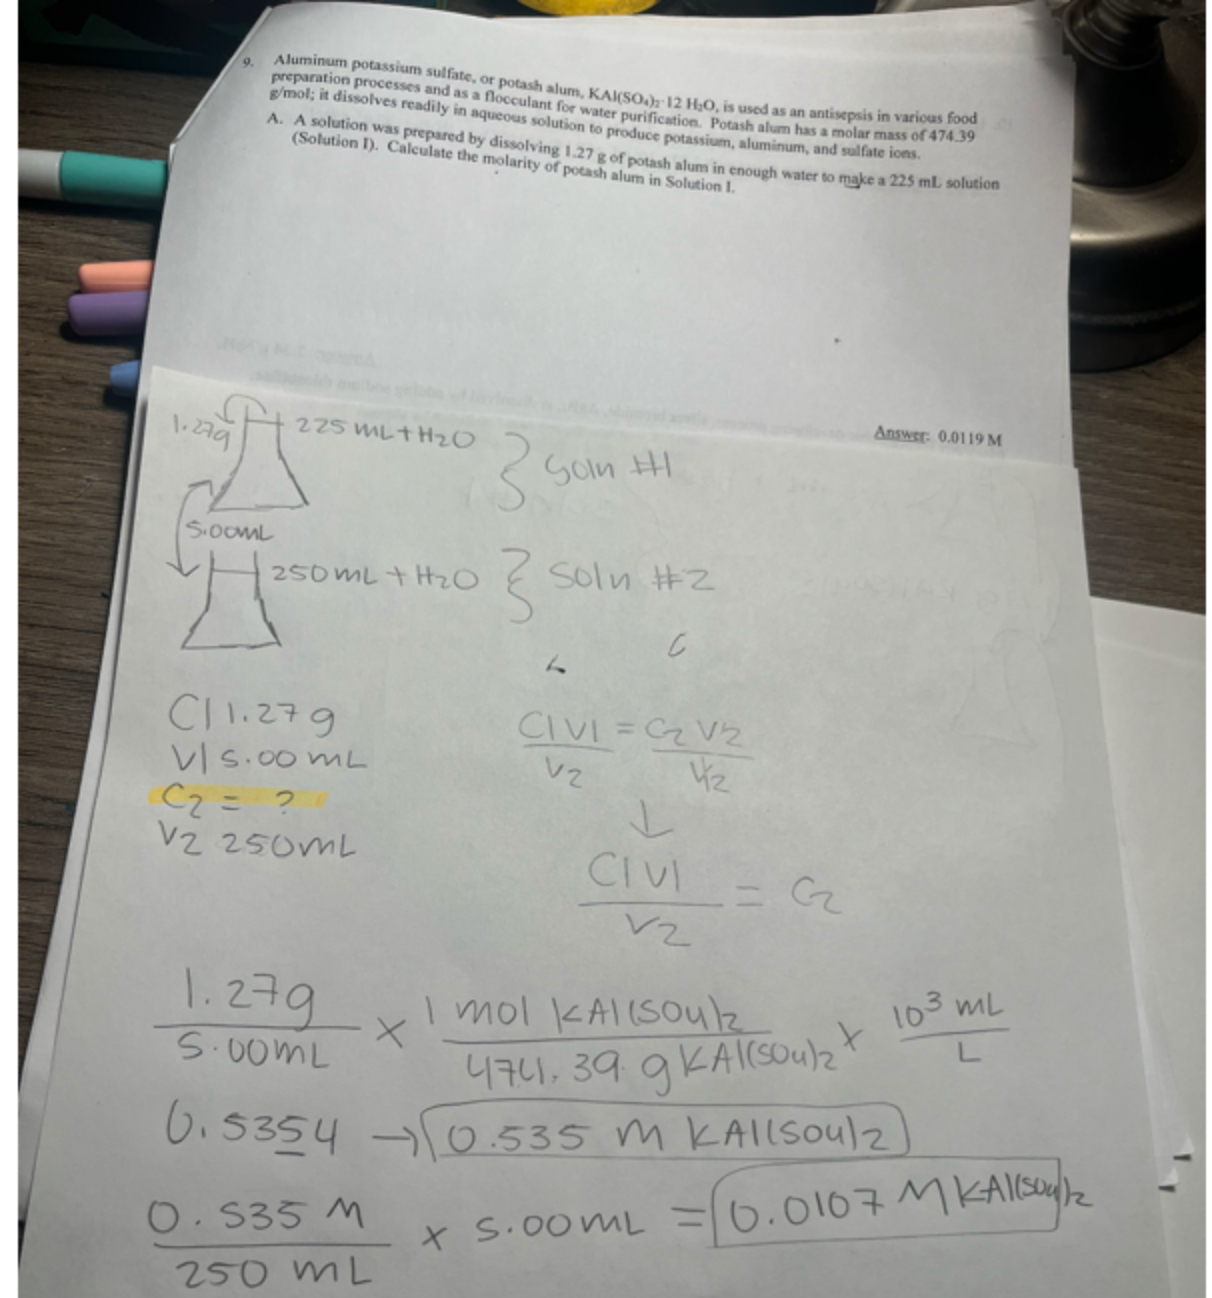 9. Aluminum potassium sulfate, or potash alum, KAl(SO₄)₂·12 H₂O, is used as an antisepsis in various food
preparation processes and as a flocculant for water purification. Potash alum has a molar mass of 474.39
g/mol; it dissolves readily in aqueous solution to produce potassium, aluminum, and sulfate ions.
A. A solution was prepared by dissolving 1.27 g of potash alum in enough water to make a 225 mL solution
(Solution I). Calculate the molarity of potash alum in Solution I.
Answer: 0.0119 M
1.27g 225 mL + H2O } Soln #1
5.00mL
250mL + H2O } Soln #2
C1 1.27g
V1 5.00 mL
C2 = ?
V2 250mL
C1V1 = C2V2
V2 V2
↓
C1V1 = C2
V2
1.27g × 1 mol KAl(SO4)2 × 10³ mL
5.00mL 474.39 g KAl(SO4)2 L
0.5354 → 0.535 M KAl(SO4)2
0.535 M × 5.00mL = 0.0107 M KAl(SO4)2
250 mL